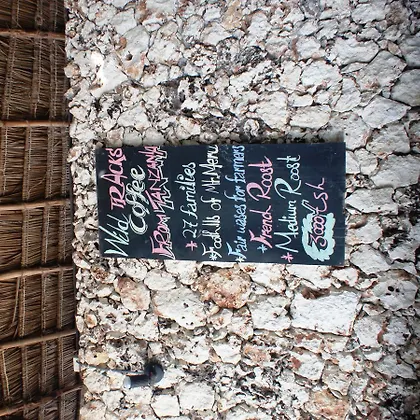 Wild TRACKS
Coffee
FROM TANZANIA
* 27 families
* Foothills of Mt Meru
* Fair wages for farmers
* French Roast
* Medium Roast